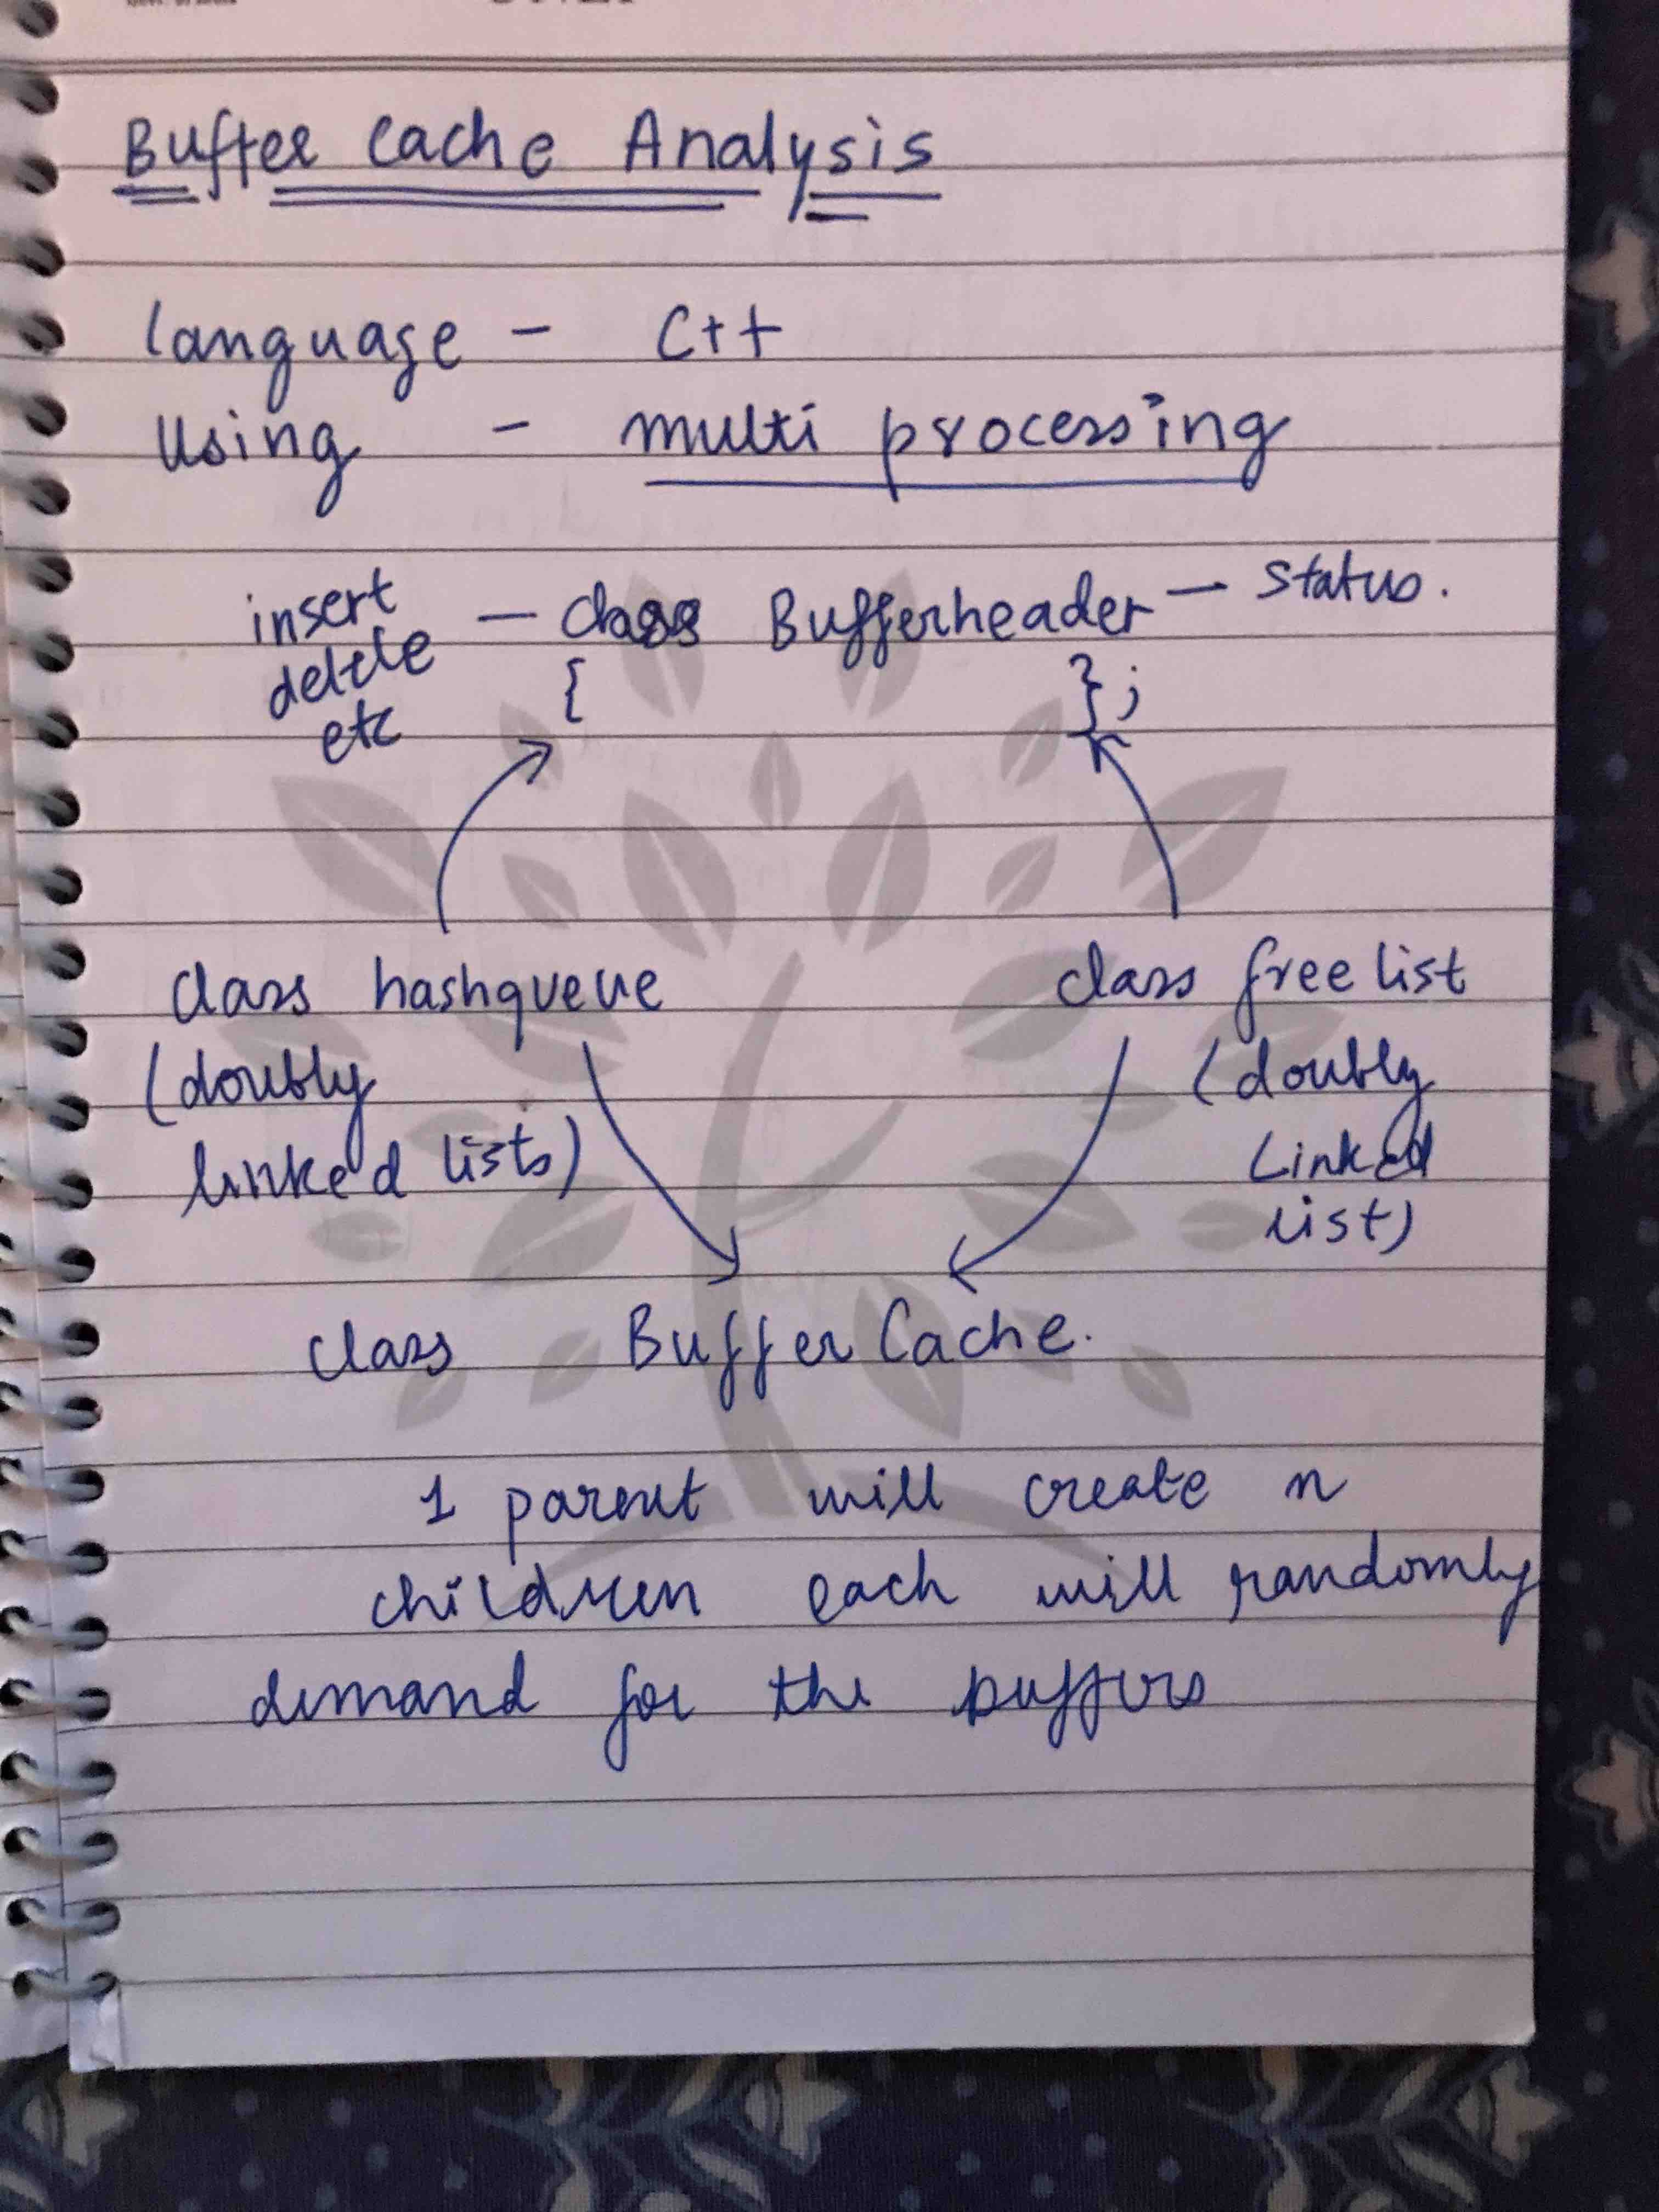 Buffer Cache Analysis
language - C++
Using - multi processing
insert
delete
etc
- class Bufferheader - status.
{ };
class hashqueue
(doubly
linked lists)
class free list
(doubly
Linked
list)
class Buffer Cache.
1 parent will create n
children each will randomly
demand for the buffers